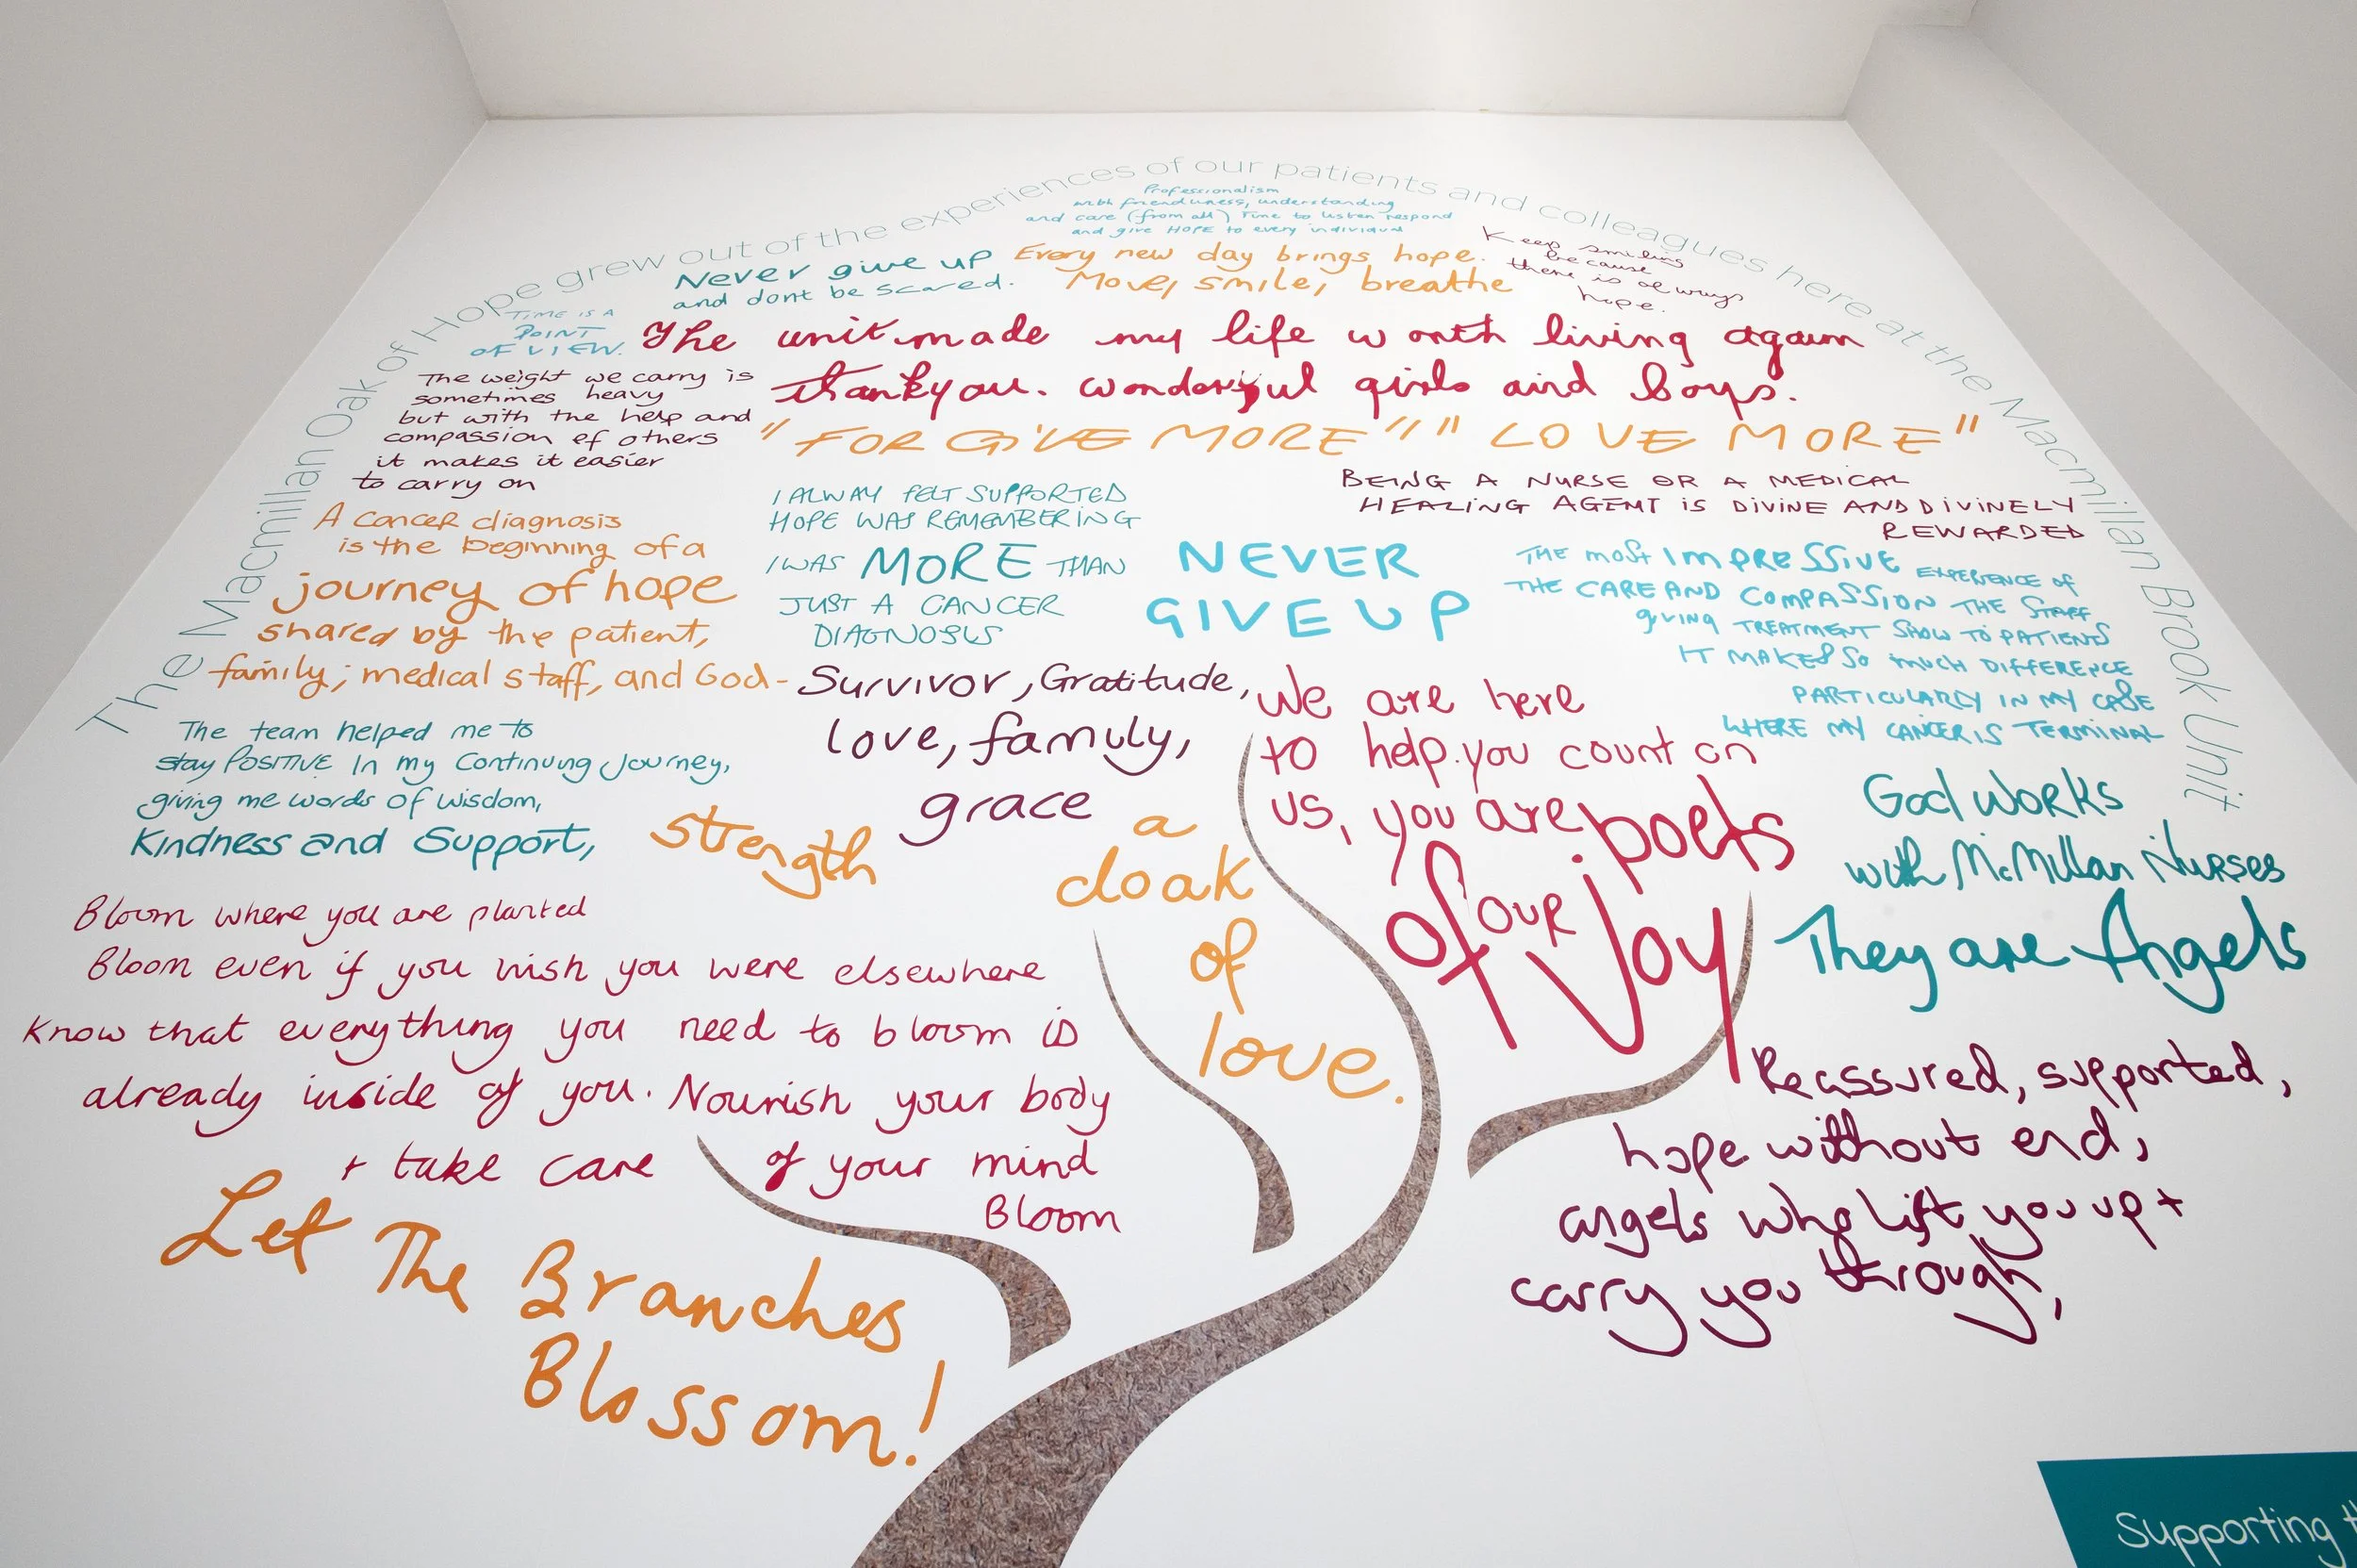 The Macmillan Oak of Hope grew out of the experiences of our patients and colleagues here at the Macmillan Brook Unit
Professionalism
with friendliness, understanding
and care (from all) Time to listen respond
and give HOPE to every individual
Never give up
and dont be scared.
Every new day brings hope.
Move, smile, breathe
Keep smiling
because
there is always
hope.
TIME IS A
POINT
OF VIEW.
The unit made my life worth living again
thankyou. wonderful girls and boys.
The weight we carry is
sometimes heavy
but with the help and
compassion of others
it makes it easier
to carry on
"FORGIVE MORE" "LOVE MORE"
A cancer diagnosis
is the beginning of a
journey of hope
shared by the patient,
family, medical staff, and God-
I ALWAY FELT SUPPORTED
HOPE WAS REMEMBERING
I WAS MORE THAN
JUST A CANCER
DIAGNOSIS
BEING A NURSE OR A MEDICAL
HEALING AGENT IS DIVINE AND DIVINELY
REWARDED
NEVER
GIVE UP
THE most IMPRESSIVE EXPERIENCE OF
THE CARE AND COMPASSION THE STAFF
giving TREATMENT SHOW TO PATIENTS
IT MAKES SO much DIFFERENCE
PARTICULARLY IN MY CASE
WHERE MY CANCER IS TERMINAL
The team helped me to
stay POSITIVE In my Continuing Journey,
giving me words of wisdom,
Kindness and Support,
Survivor, Gratitude,
love, family,
grace
strength
a
cloak
of
love.
We are here
to help. you count on
us, you are poets
of our Joy
God works
with McMillan Nurses
They are Angels
Bloom where you are planted
Bloom even if you wish you were elsewhere
Know that everything you need to bloom is
already inside of you. Nourish your body
+ take care of your mind
Bloom
Reassured, supported,
hope without end,
angels who lift you up +
carry you through,
Let The Branches
Blossom!
Supporting